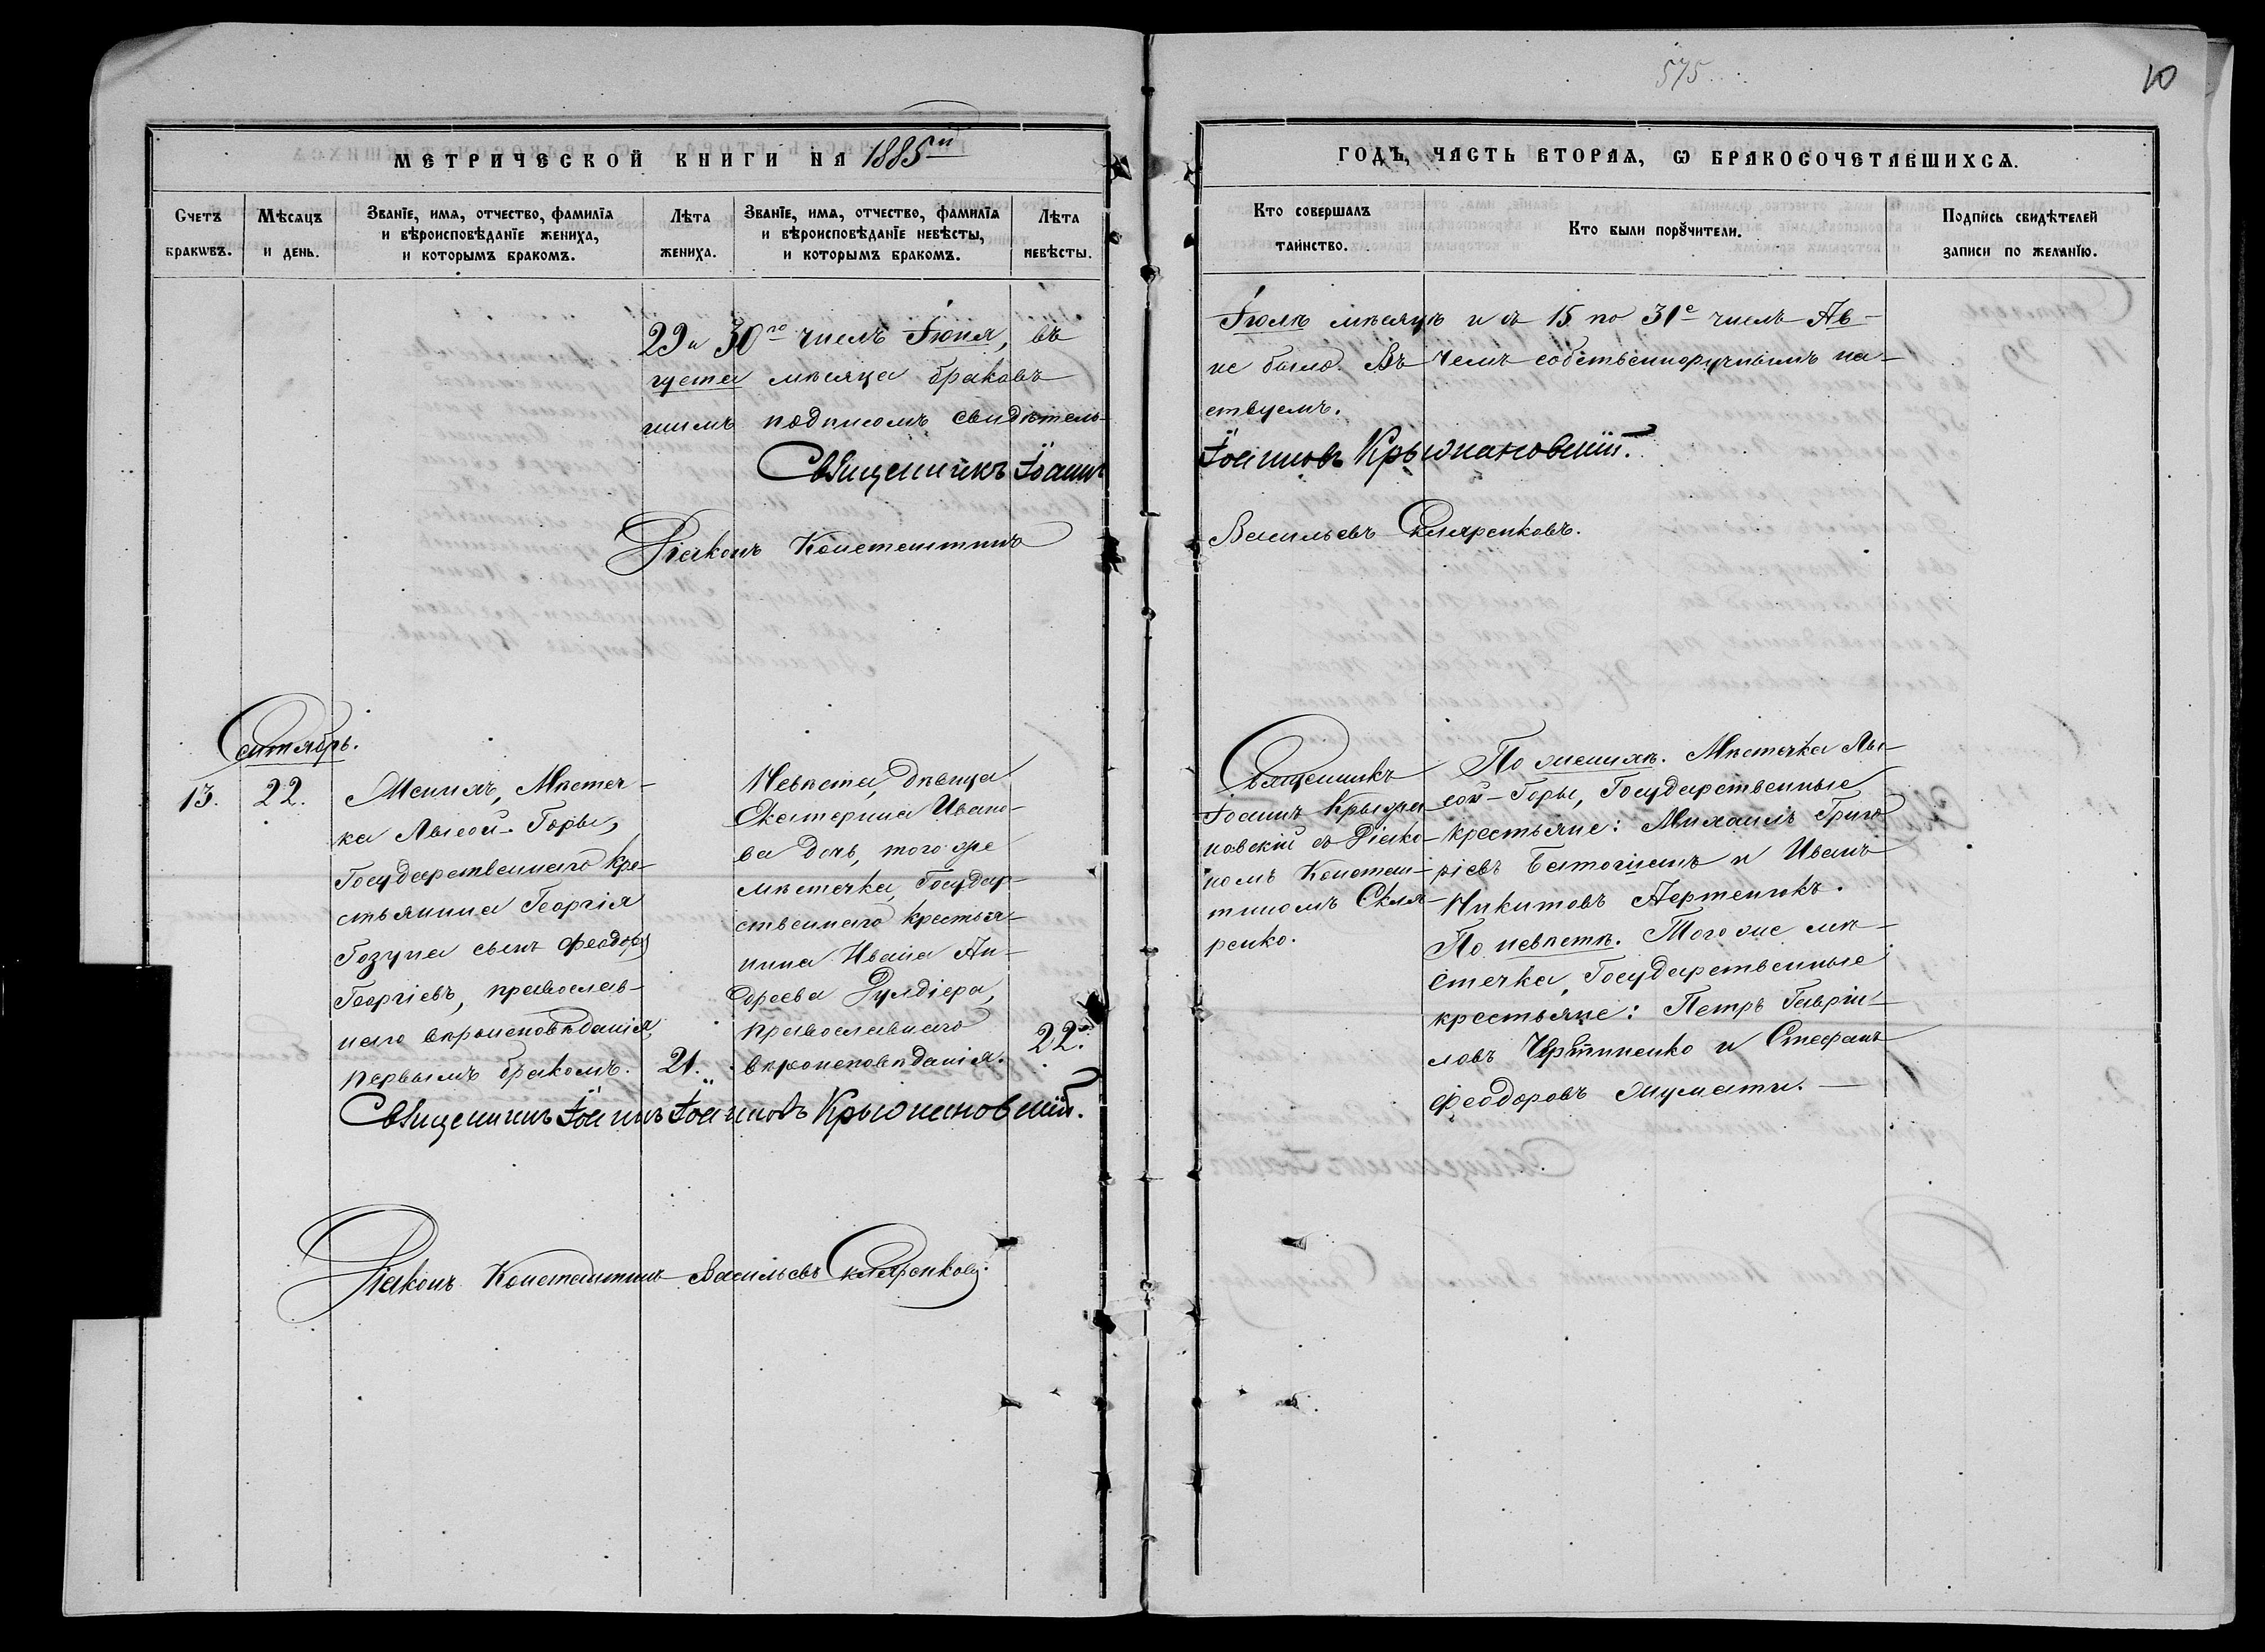 575
10
МЕТРИЧЕСКОЙ КНИГИ НА 1885й
ГОДЪ, ЧАСТЬ ВТОРАѦ, Ѡ БРАКОСОЧЕТАВШИХСѦ.
Счетъ бракѡвъ.
Мѣсѧцъ и день.
Званїе, имѧ, отчество, фамилїѧ
и вѣроисповѣданїе жениха,
и которымъ бракомъ.
Лѣта жениха.
Званїе, имѧ, отчество, фамилїѧ
и вѣроисповѣданїе невѣсты,
и которымъ бракомъ.
Лѣта невѣсты.
Кто совершалъ
таинство.
Кто были порꙋчители.
Подпись свидѣтелей
записи по желанїю.
29 и 30го числъ Іюня, въ Іюлѣ мѣсяцѣ и съ 15 по 31е числъ Ав-
густа мѣсяца браковъ не было. Въ чемъ собственноручнымъ на-
шимъ подписомъ свидѣтель-ствуемъ.
Священникъ Іоаннъ Іоанновъ Крыжановскій.
Діаконъ Константинъ Васильевъ Скляренковъ.
Сентябрь.
13.
22.
Женихъ, Мѣстеч-
ка Лысой-Горы,
Государственнаго кре-
стьянина Георгія
Гозуна сынъ Феодоръ
Георгіевъ, православ-
наго вѣроисповѣданія,
первымъ бракомъ.
21.
Невѣста, дѣвица
Екатерина Ивано-
ва дочь, того же
мѣстечка, Государ-
ственнаго крестья-
нина Ивана Ан-
дреева
православнаго
вѣроисповѣданія.
22.
Священникъ
Іоаннъ Крыжа-
новскій съ Діако-
номъ Констан-
тиномъ Скля-
ренко.
По женихѣ. Мѣстечка Лы-
сой-Горы, Государственные
крестьяне: Михаилъ Григо
ріевъ и Иванъ
Никитовъ
По невѣстѣ. Того же мѣ-
стечка, Государственные
крестьяне: Петръ Гаврiи-
ловъ и Стефанъ
Феодоровъ
Священникъ Іоаннъ Іоанновъ Крыжановскій.
Діаконъ Константинъ Васильевъ Скляренковъ.